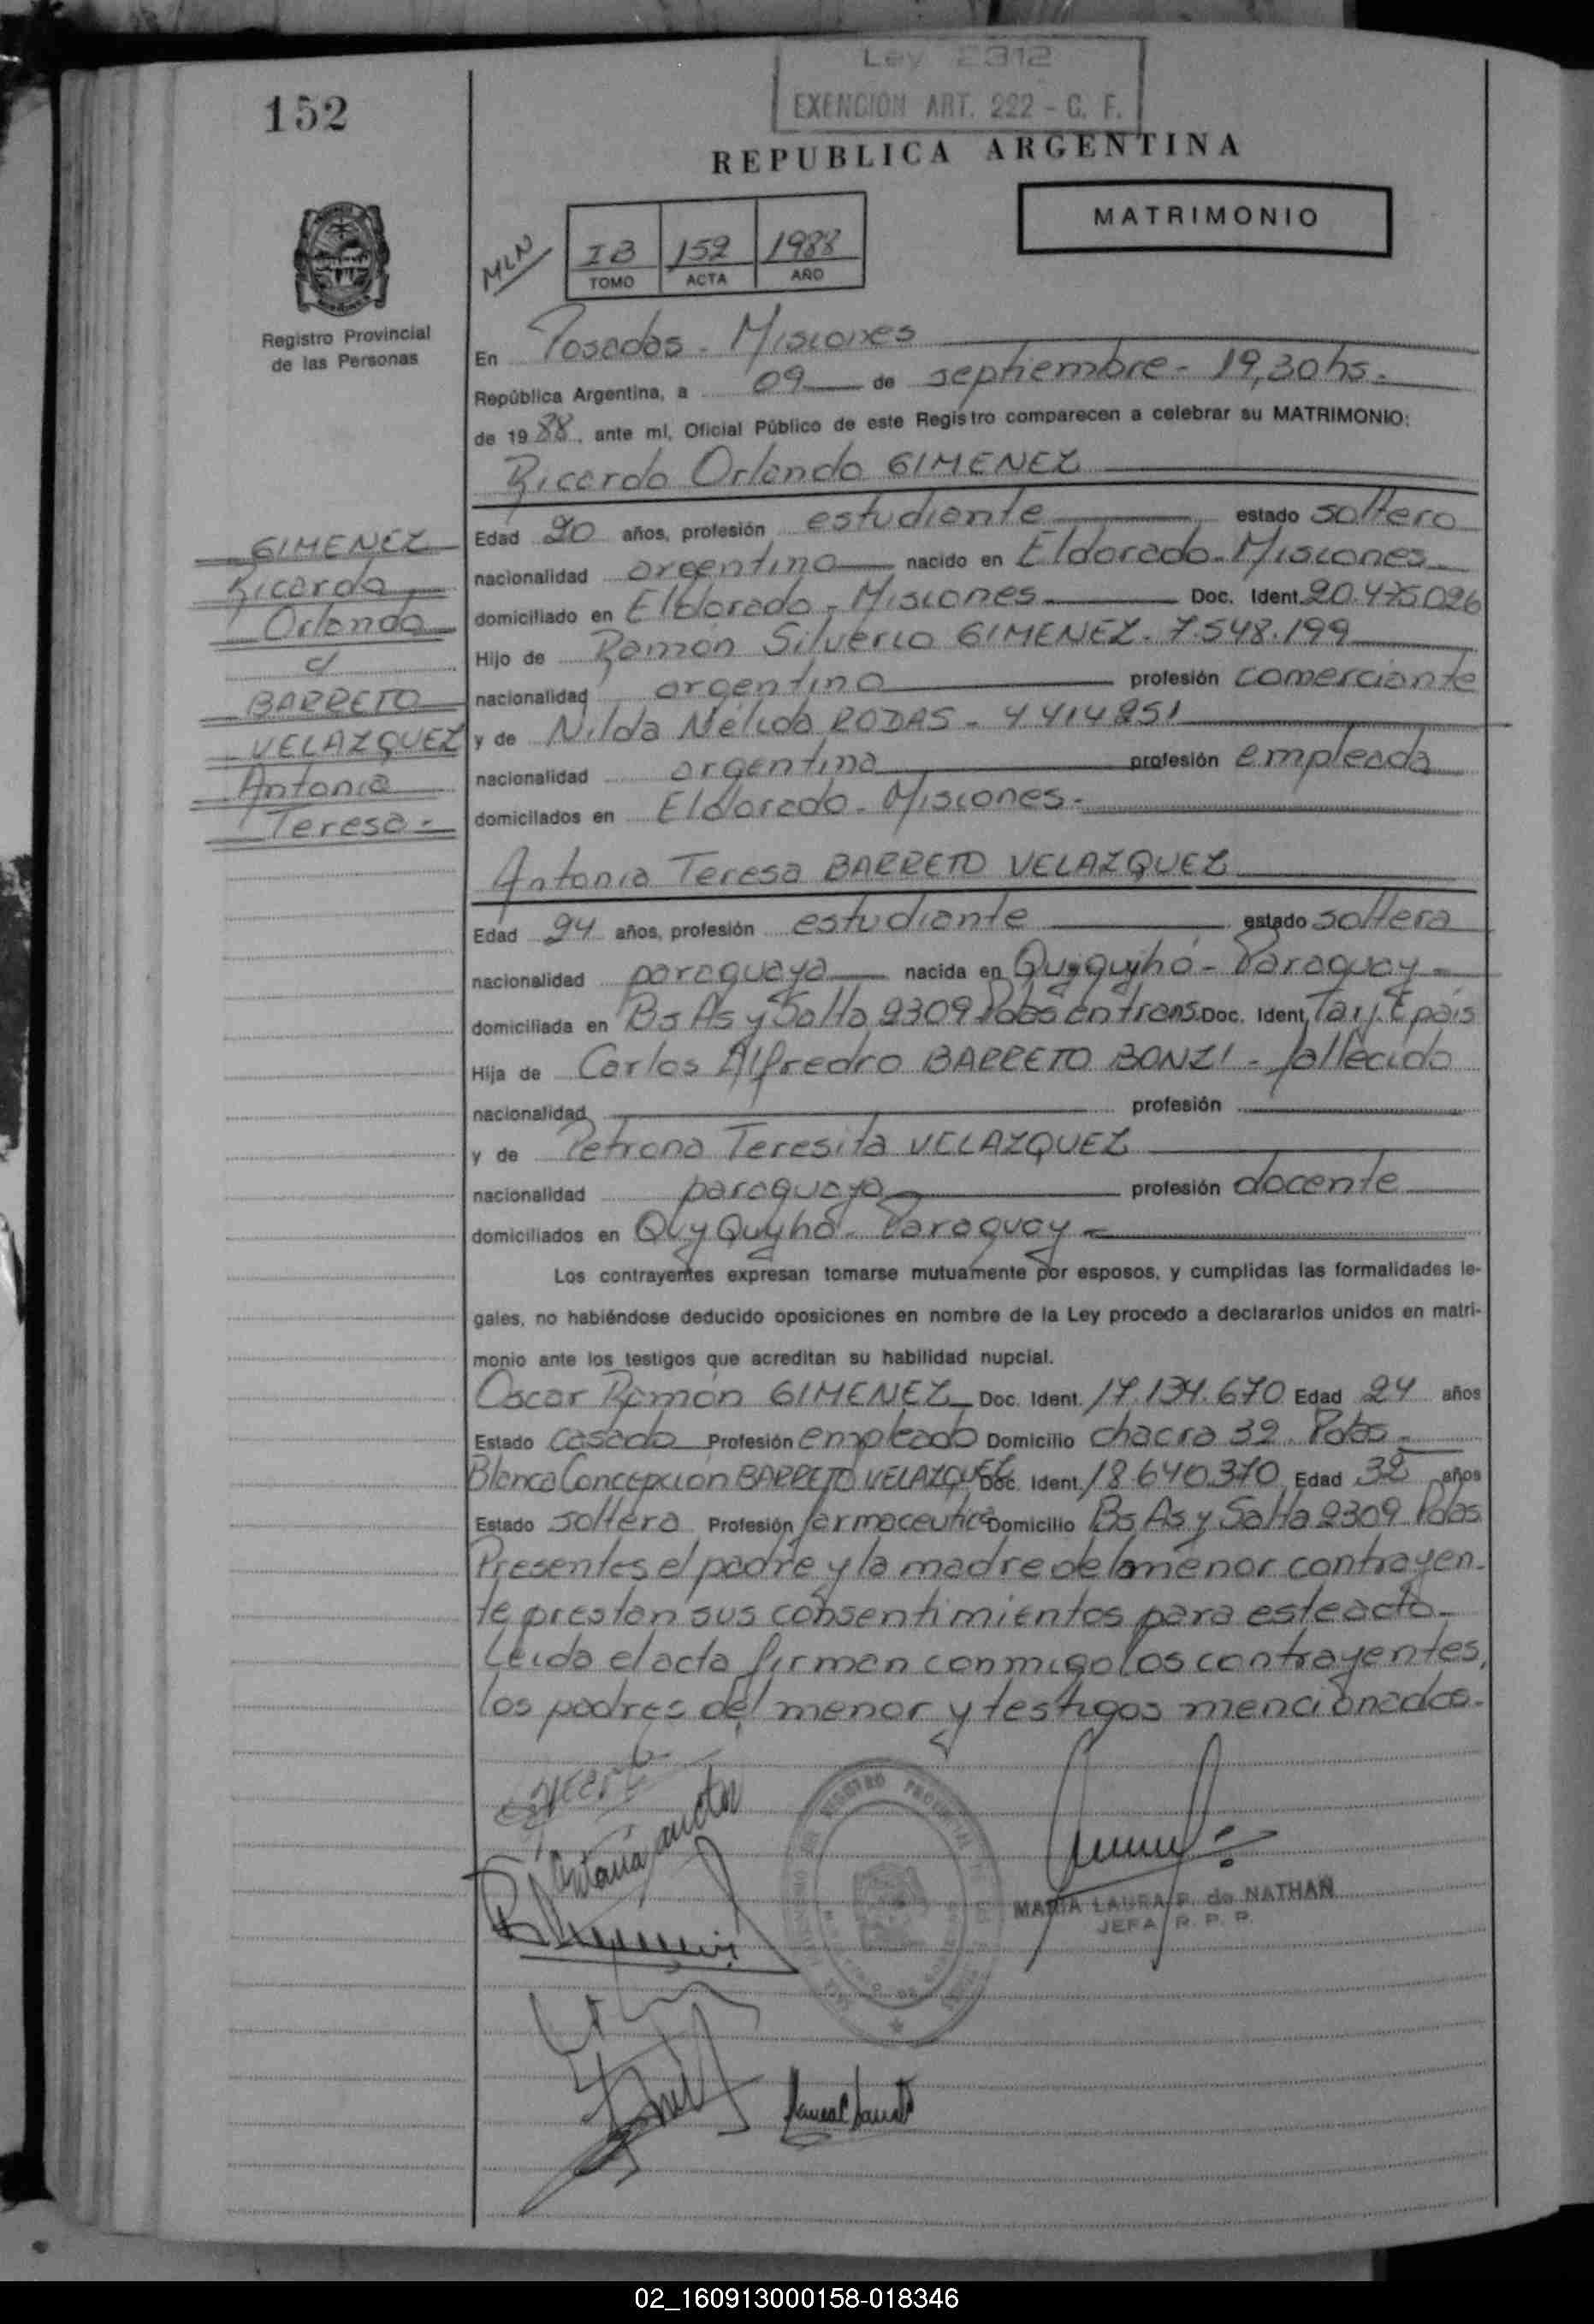 Ley 2312
EXENCION ART. 222 - C. F.
152
REPUBLICA ARGENTINA
MATRIMONIO
MLN
IB 152 1988
TOMO ACTA AÑO
Registro Provincial
de las Personas
En Posadas - Misiones
República Argentina, a 09 de septiembre - 19,30 hs.
de 1988, ante mí, Oficial Público de este Registro comparecen a celebrar su MATRIMONIO:
Ricardo Orlando GIMENEZ
Edad 20 años, profesión estudiante estado soltero
nacionalidad argentina nacido en Eldorado - Misiones
domiciliado en Eldorado - Misiones Doc. Ident. 20.475.026
Hijo de Ramón Silverio GIMENEZ - 7.548.199
nacionalidad argentina profesión comerciante
y de Nilda Nélida RODAS - 4414251
nacionalidad argentina profesión empleada
domiciliados en Eldorado - Misiones.
GIMENEZ
Ricardo
Orlando
c/
BARRETO
VELAZQUEZ
Antonia
Teresa.-
Antonia Teresa BARRETO VELAZQUEZ
Edad 24 años, profesión estudiante estado soltera
nacionalidad paraguaya nacida en Quyquyhó - Paraguay
domiciliada en Bs As y Salta 2309 Pdas en trans. Doc. Ident. Tarj. E país
Hija de Carlos Alfredro BARRETO BONZI - fallecido
nacionalidad profesión
y de Petrona Teresita VELAZQUEZ
nacionalidad paraguaya profesión docente
domiciliados en QuyQuyhó - Paraguay
Los contrayentes expresan tomarse mutuamente por esposos, y cumplidas las formalidades le-
gales, no habiéndose deducido oposiciones en nombre de la Ley procedo a declararlos unidos en matri-
monio ante los testigos que acreditan su habilidad nupcial.
Oscar Ramón GIMENEZ Doc. Ident. 17.134.670 Edad 24 años
Estado casado Profesión empleado Domicilio chacra 32. Pdas
Blanca Concepción BARRETO VELAZQUEZ Doc. Ident. 18.640.370 Edad 32 años
Estado soltera Profesión farmaceutica Domicilio Bs As y Salta 2309 Pdas
Presentes el padre y la madre del menor contrayen-
te prestan sus consentimientos para este acto.
Leída el acta firman conmigo los contrayentes,
los padres del menor y testigos mencionados.
MARIA LAURA P. de NATHAN
JEFA R. P. P.
REGISTRO PROVINCIAL
02_160913000158-018346